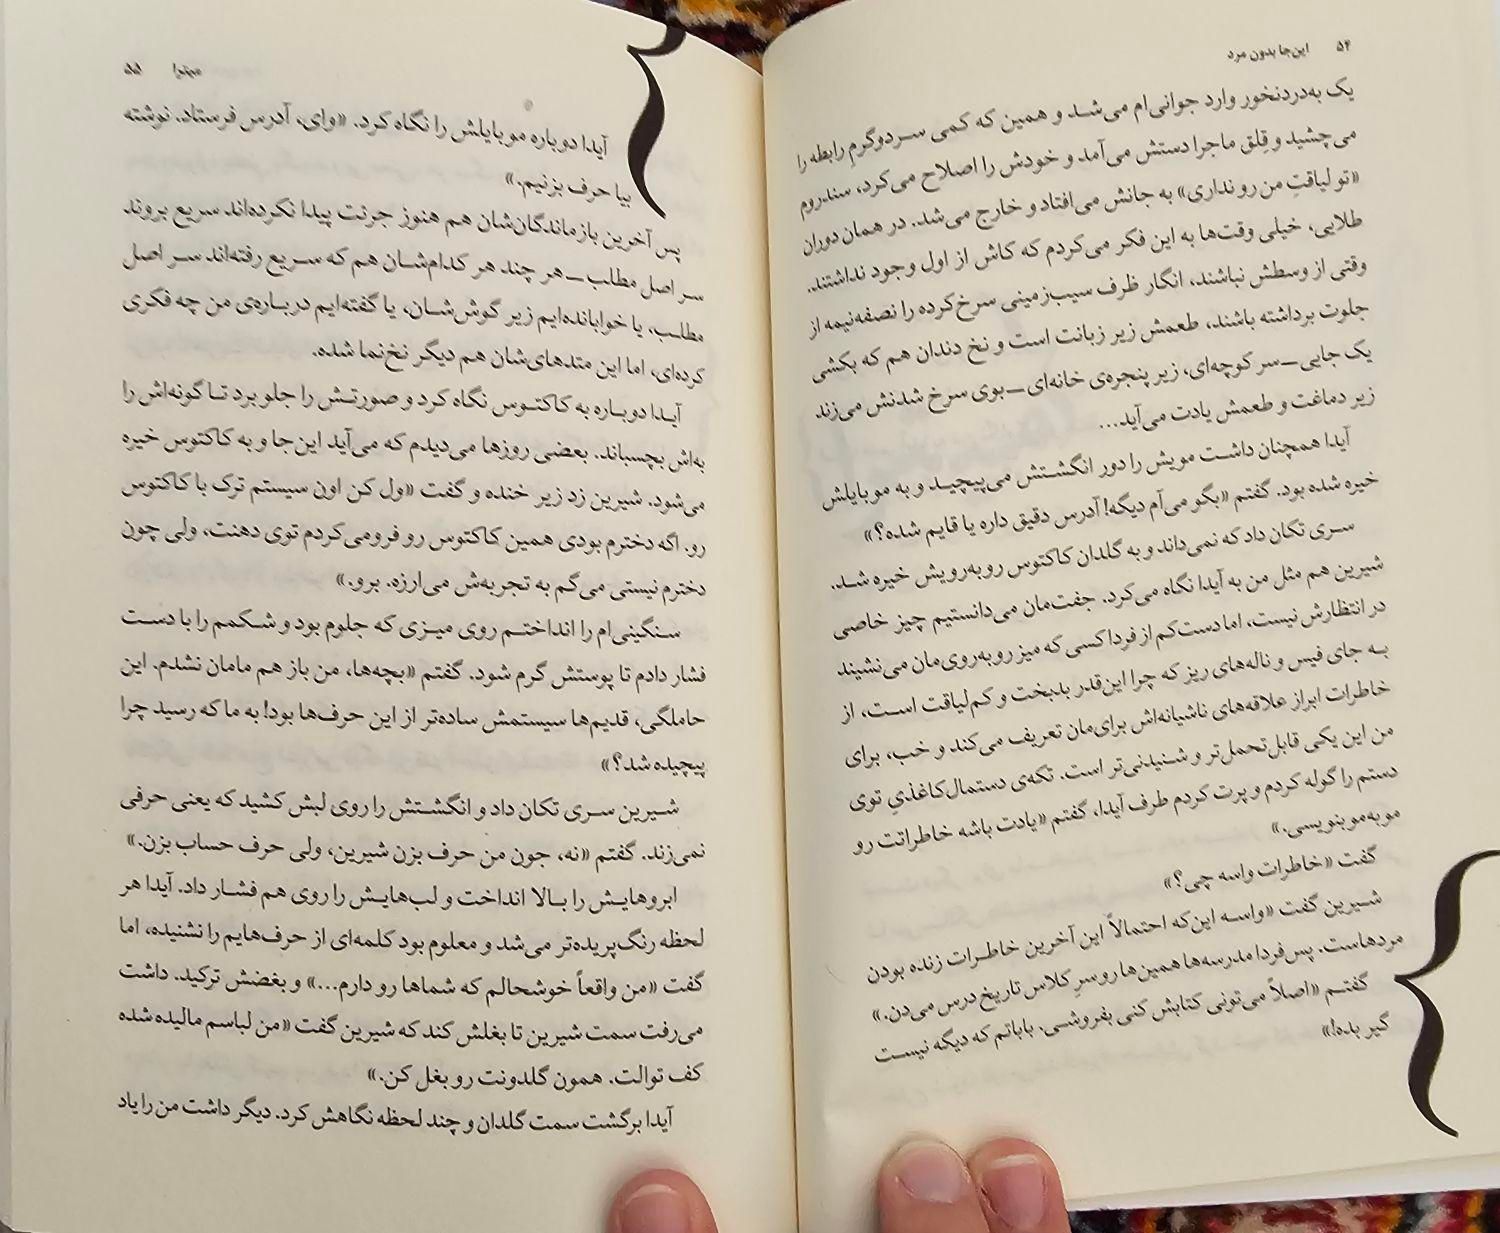 ۵۴ این‌جا بدون مرد
یک به‌دردنخور وارد جوانی‌ام می‌شد و همین که کمی سردوگرمِ رابطه را
می‌چشید و قِلق ماجرا دستش می‌آمد و خودش را اصلاح می‌کرد، سندروم
«تو لیاقتِ من رو نداری» به جانش می‌افتاد و خارج می‌شد. در همان دوران
طلایی، خیلی وقت‌ها به این فکر می‌کردم که کاش از اول وجود نداشتند.
وقتی از وسطش نباشند، انگار ظرف سیب‌زمینی سرخ‌کرده را نصفه‌نیمه از
جلوت برداشته باشند، طعمش زیر زبانت است و نخ دندان هم که بکشی
یک جایی ــ سر کوچه‌ای، زیر پنجره‌ی خانه‌ای ــ بوی سرخ شدنش می‌زند
زیر دماغت و طعمش یادت می‌آید...
آیدا همچنان داشت مویش را دور انگشتش می‌پیچید و به موبایلش
خیره شده بود. گفتم «بگو می‌آم دیگه! آدرس دقیق داره یا قایم شده؟»
سری تکان داد که نمی‌داند و به گلدان کاکتوس روبه‌رویش خیره شد.
شیرین هم مثل من به آیدا نگاه می‌کرد. جفت‌مان می‌دانستیم چیز خاصی
در انتظارش نیست، اما دست‌کم از فردا کسی که میز روبه‌روی‌مان می‌نشیند
به جای فیس و ناله‌های ریز که چرا این‌قدر بدبخت و کم‌لیاقت است، از
خاطرات ابراز علاقه‌های ناشیانه‌اش برای‌مان تعریف می‌کند و خب، برای
من این یکی قابل‌تحمل‌تر و شنیدنی‌تر است. تکه‌ی دستمال‌کاغذیِ توی
دستم را گوله کردم و پرت کردم طرف آیدا، گفتم «یادت باشه خاطراتت رو
موبه‌مو بنویسی.»
گفت «خاطرات واسه چی؟»
شیرین گفت «واسه این‌که احتمالاً این آخرین خاطرات زنده بودن
مردهاست. پس‌فردا مدرسه‌ها همین‌ها رو سرِ کلاس تاریخ درس می‌دن.»
گفتم «اصلاً می‌تونی کتابش کنی بفروشی. باباتم که دیگه نیست
گیر بده!»
میترا ۵۵
آیدا دوباره موبایلش را نگاه کرد. «وای، آدرس فرستاد. نوشته
بیا حرف بزنیم.»
پس آخرین بازماندگان‌شان هم هنوز جرئت پیدا نکرده‌اند سریع بروند
سر اصل مطلب ــ هر چند هر کدام‌شان هم که سریع رفته‌اند سر اصل
مطلب، یا خوابانده‌ایم زیر گوش‌شان، یا گفته‌ایم درباره‌ی من چه فکری
کرده‌ای، اما این متدهای‌شان هم دیگر نخ‌نما شده.
آیدا دوباره به کاکتوس نگاه کرد و صورتش را جلو برد تا گونه‌اش را
به‌اش بچسباند. بعضی روزها می‌دیدم که می‌آید این‌جا و به کاکتوس خیره
می‌شود. شیرین زد زیر خنده و گفت «ول کن اون سیستم ترک با کاکتوس
رو. اگه دخترم بودی همین کاکتوس رو فرومی‌کردم توی دهنت، ولی چون
دخترم نیستی می‌گم به تجربه‌ش می‌ارزه. برو.»
سنگینی‌ام را انداختم روی میزی که جلوم بود و شکمم را با دست
فشار دادم تا پوستش گرم شود. گفتم «بچه‌ها، من باز هم مامان نشدم. این
حاملگی، قدیم‌ها سیستمش ساده‌تر از این حرف‌ها بود! به ما که رسید چرا
پیچیده شد؟»
شیرین سری تکان داد و انگشتش را روی لبش کشید که یعنی حرفی
نمی‌زند. گفتم «نه، جون من حرف بزن شیرین، ولی حرف حساب بزن.»
ابروهایش را بالا انداخت و لب‌هایش را روی هم فشار داد. آیدا هر
لحظه رنگ‌پریده‌تر می‌شد و معلوم بود کلمه‌ای از حرف‌هایم را نشنیده، اما
گفت «من واقعاً خوشحالم که شماها رو دارم...» و بغضش ترکید. داشت
می‌رفت سمت شیرین تا بغلش کند که شیرین گفت «من لباسم مالیده شده
کف توالت. همون گلدونت رو بغل کن.»
آیدا برگشت سمت گلدان و چند لحظه نگاهش کرد. دیگر داشت من را یاد